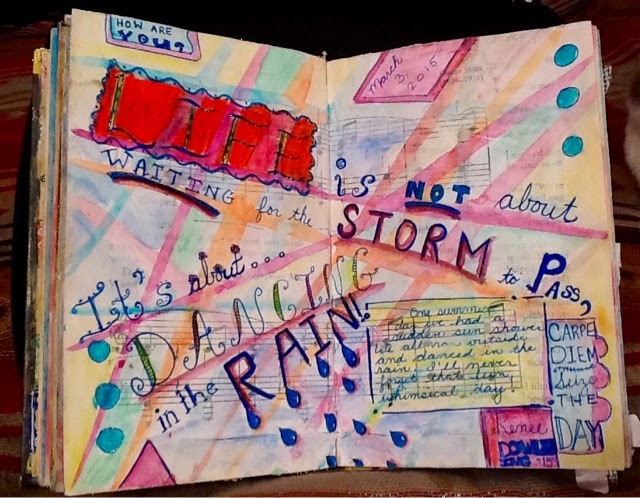 HOW ARE
YOU?
March
3,
2015
LIFE
is NOT about
WAITING for the
STORM
to PASS,
It's about....
DANCING
in the RAIN!!
One summer
day we had a
sudden sun shower
We all ran outside
and danced in the
rain I'll never
forget that fun
whimsical day!
CARPE
DIEM
SEIZE
THE
DAY
Renee